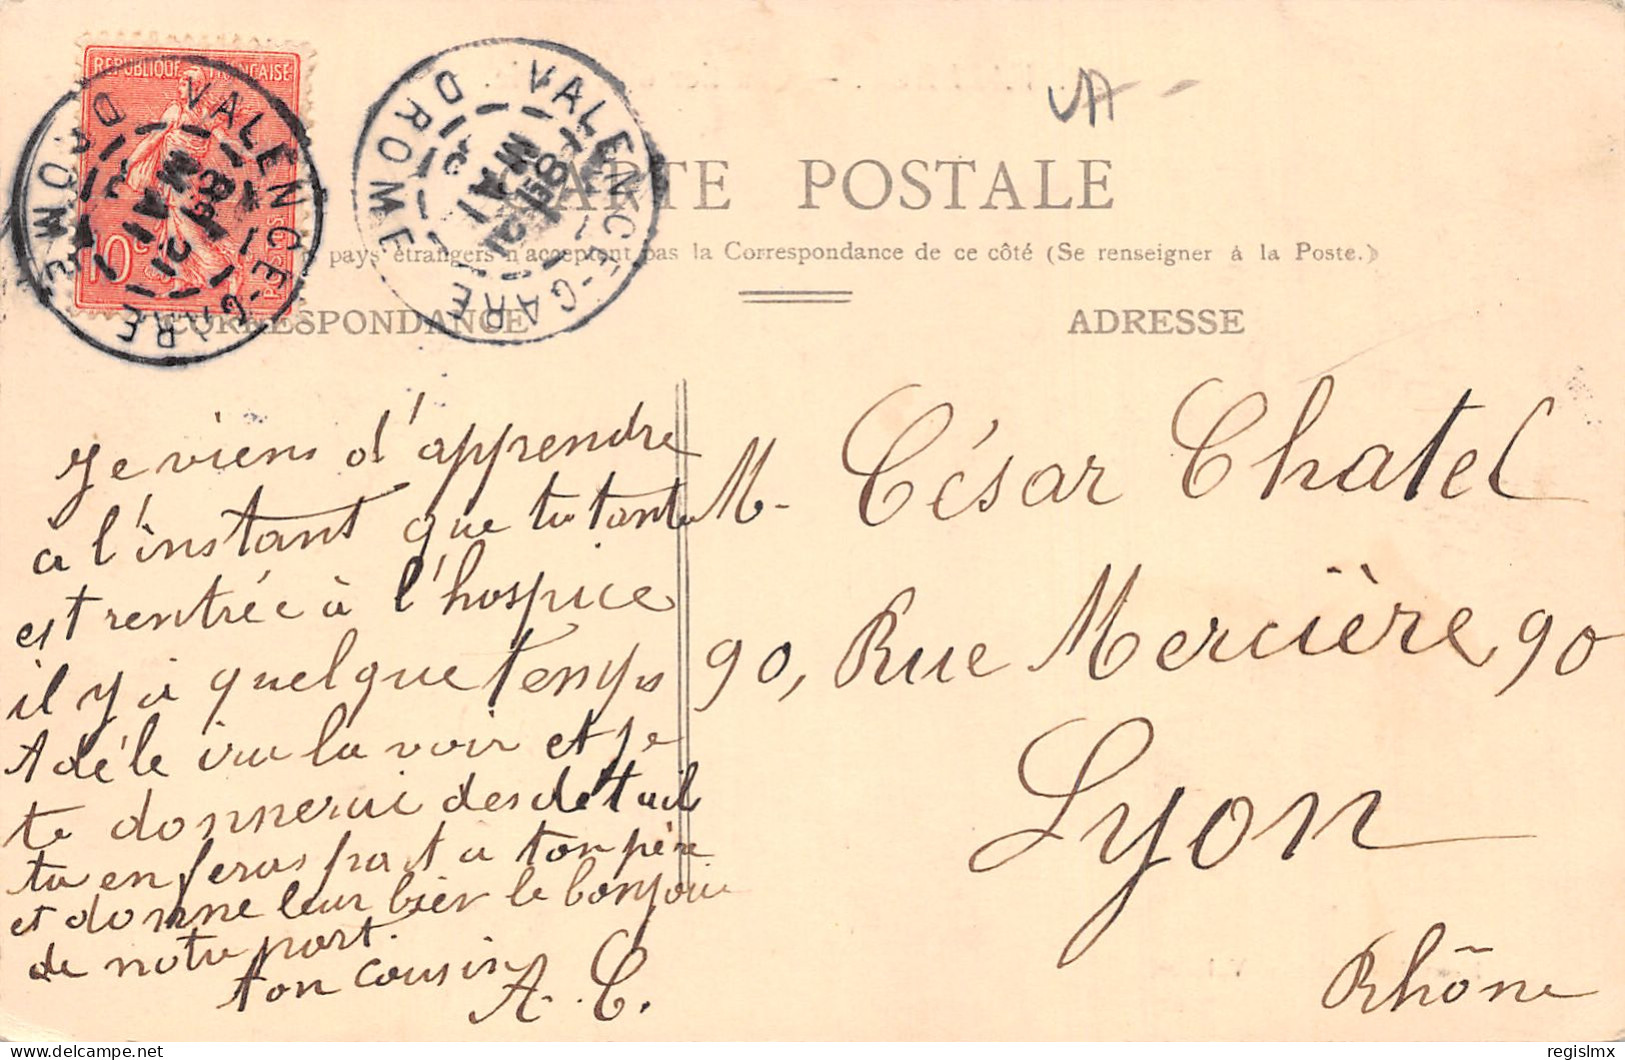 REPUBLIQUE FRANÇAISE
10c
POSTES
VALENCE-GARE
DROME
MAI
VALENCE-GARE
DROME
MAI
VA -
CARTE POSTALE
pays étrangers n'acceptent pas la Correspondance de ce côté (Se renseigner à la Poste.)
CORRESPONDANCE
ADRESSE
Je viens d'apprendre
a l'instant que ta tante
est rentrée à l'hospice
il y à quelque temps
Adèle ira la voir et je
te donnerai des détail
tu en feras part a ton père
et donne leur bien le bonjour
de notre part.
ton cousin
A. C.
M- César Chatel
90, Rue Mercière 90
Lyon
Rhône
regislmx
delcampe.net